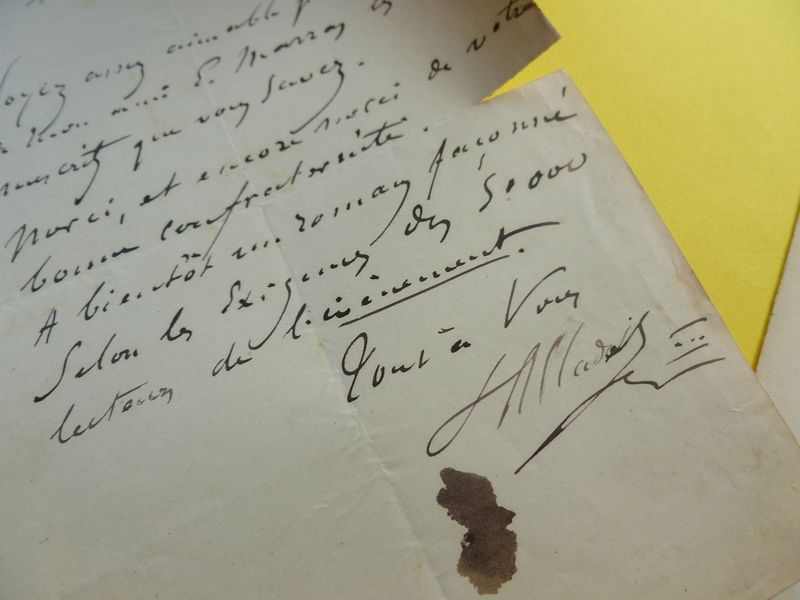 Soyez assez aimable p
à mon ami E. Marras
manuscrit que vous savez.
Merci, et encore merci de votre
bonne confraternité.
A bientôt un roman façonné
Selon les Exigences des 50.000
lecteurs de l'évènement.
Tout à Vous